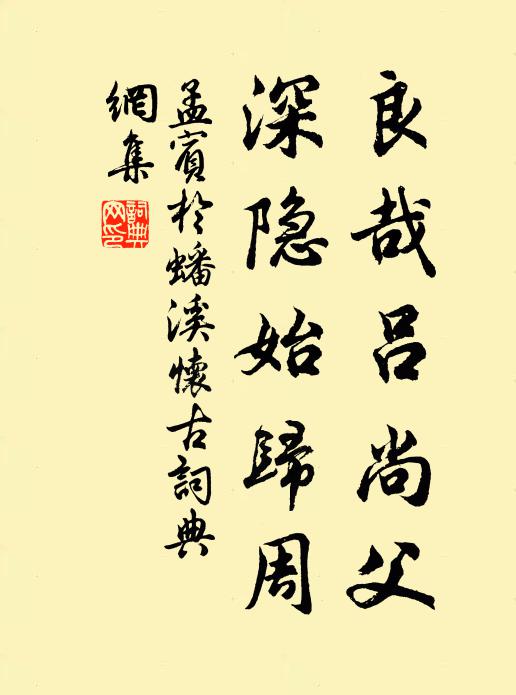 良哉吕尚父
深隐始歸周
孟賓於蟠溪懷古詞典
網集
詞典
网印